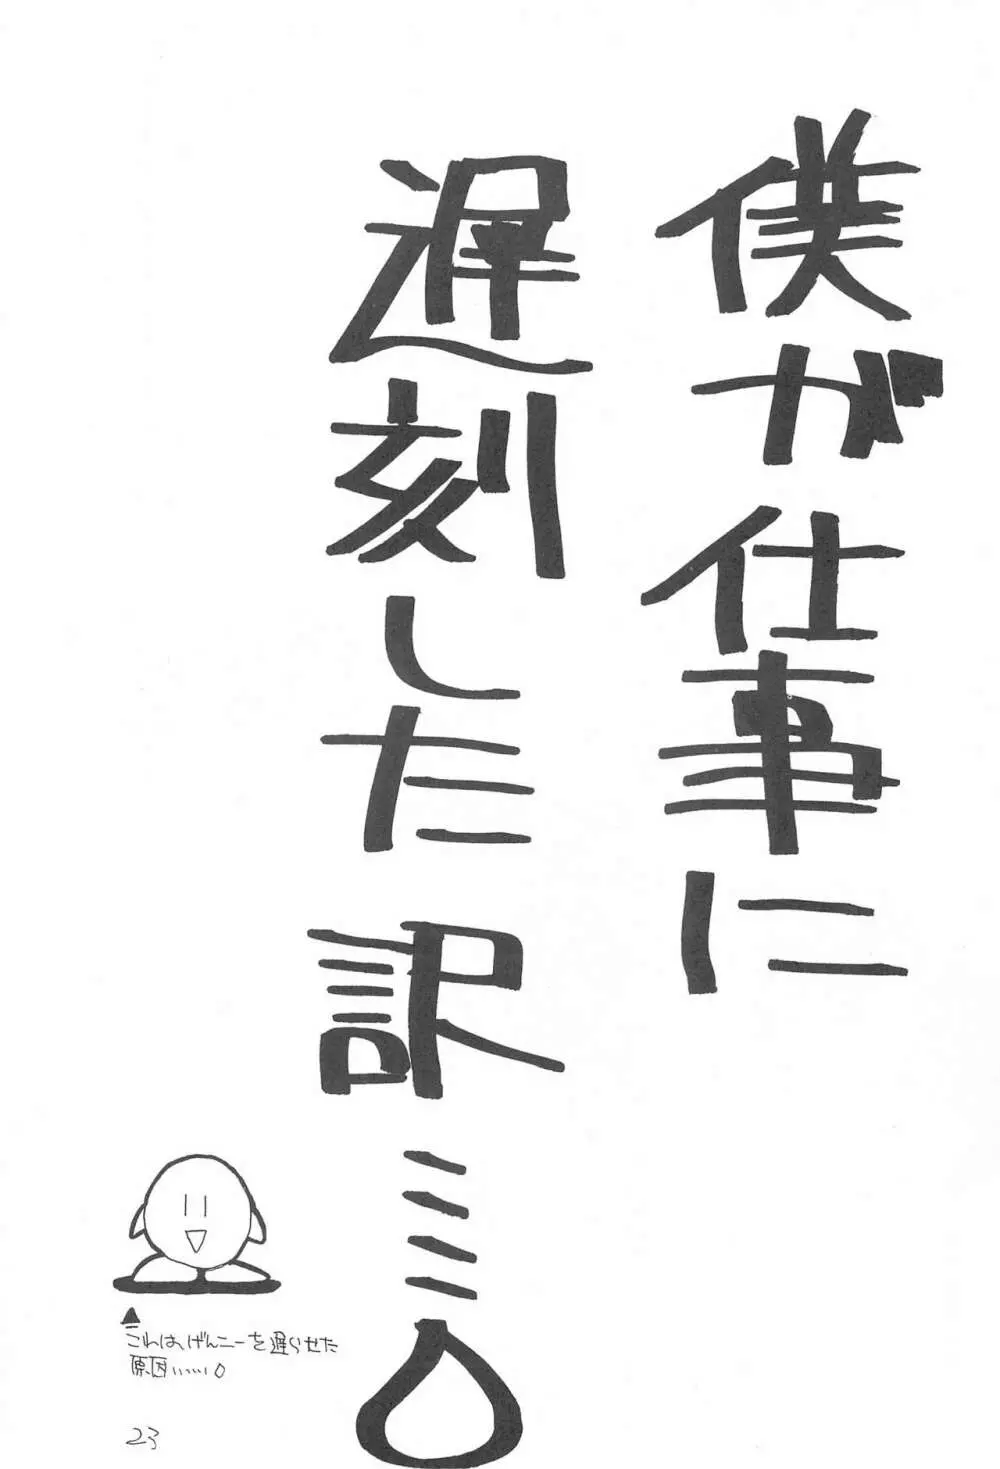 僕が仕事に
遅刻した訳……。
これは、げんこーを遅らせた
原因……。
23